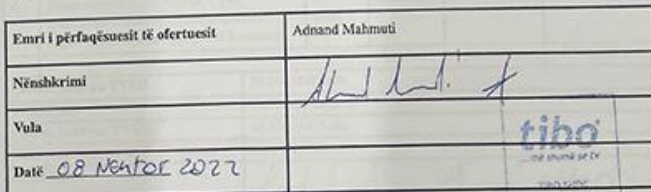 Emri i përfaqësuesit të ofertuesit
Adnand Mahmuti
Nënshkrimi
Vula
tibo
më shumë se tv
Datë 08 Nëntor 2022